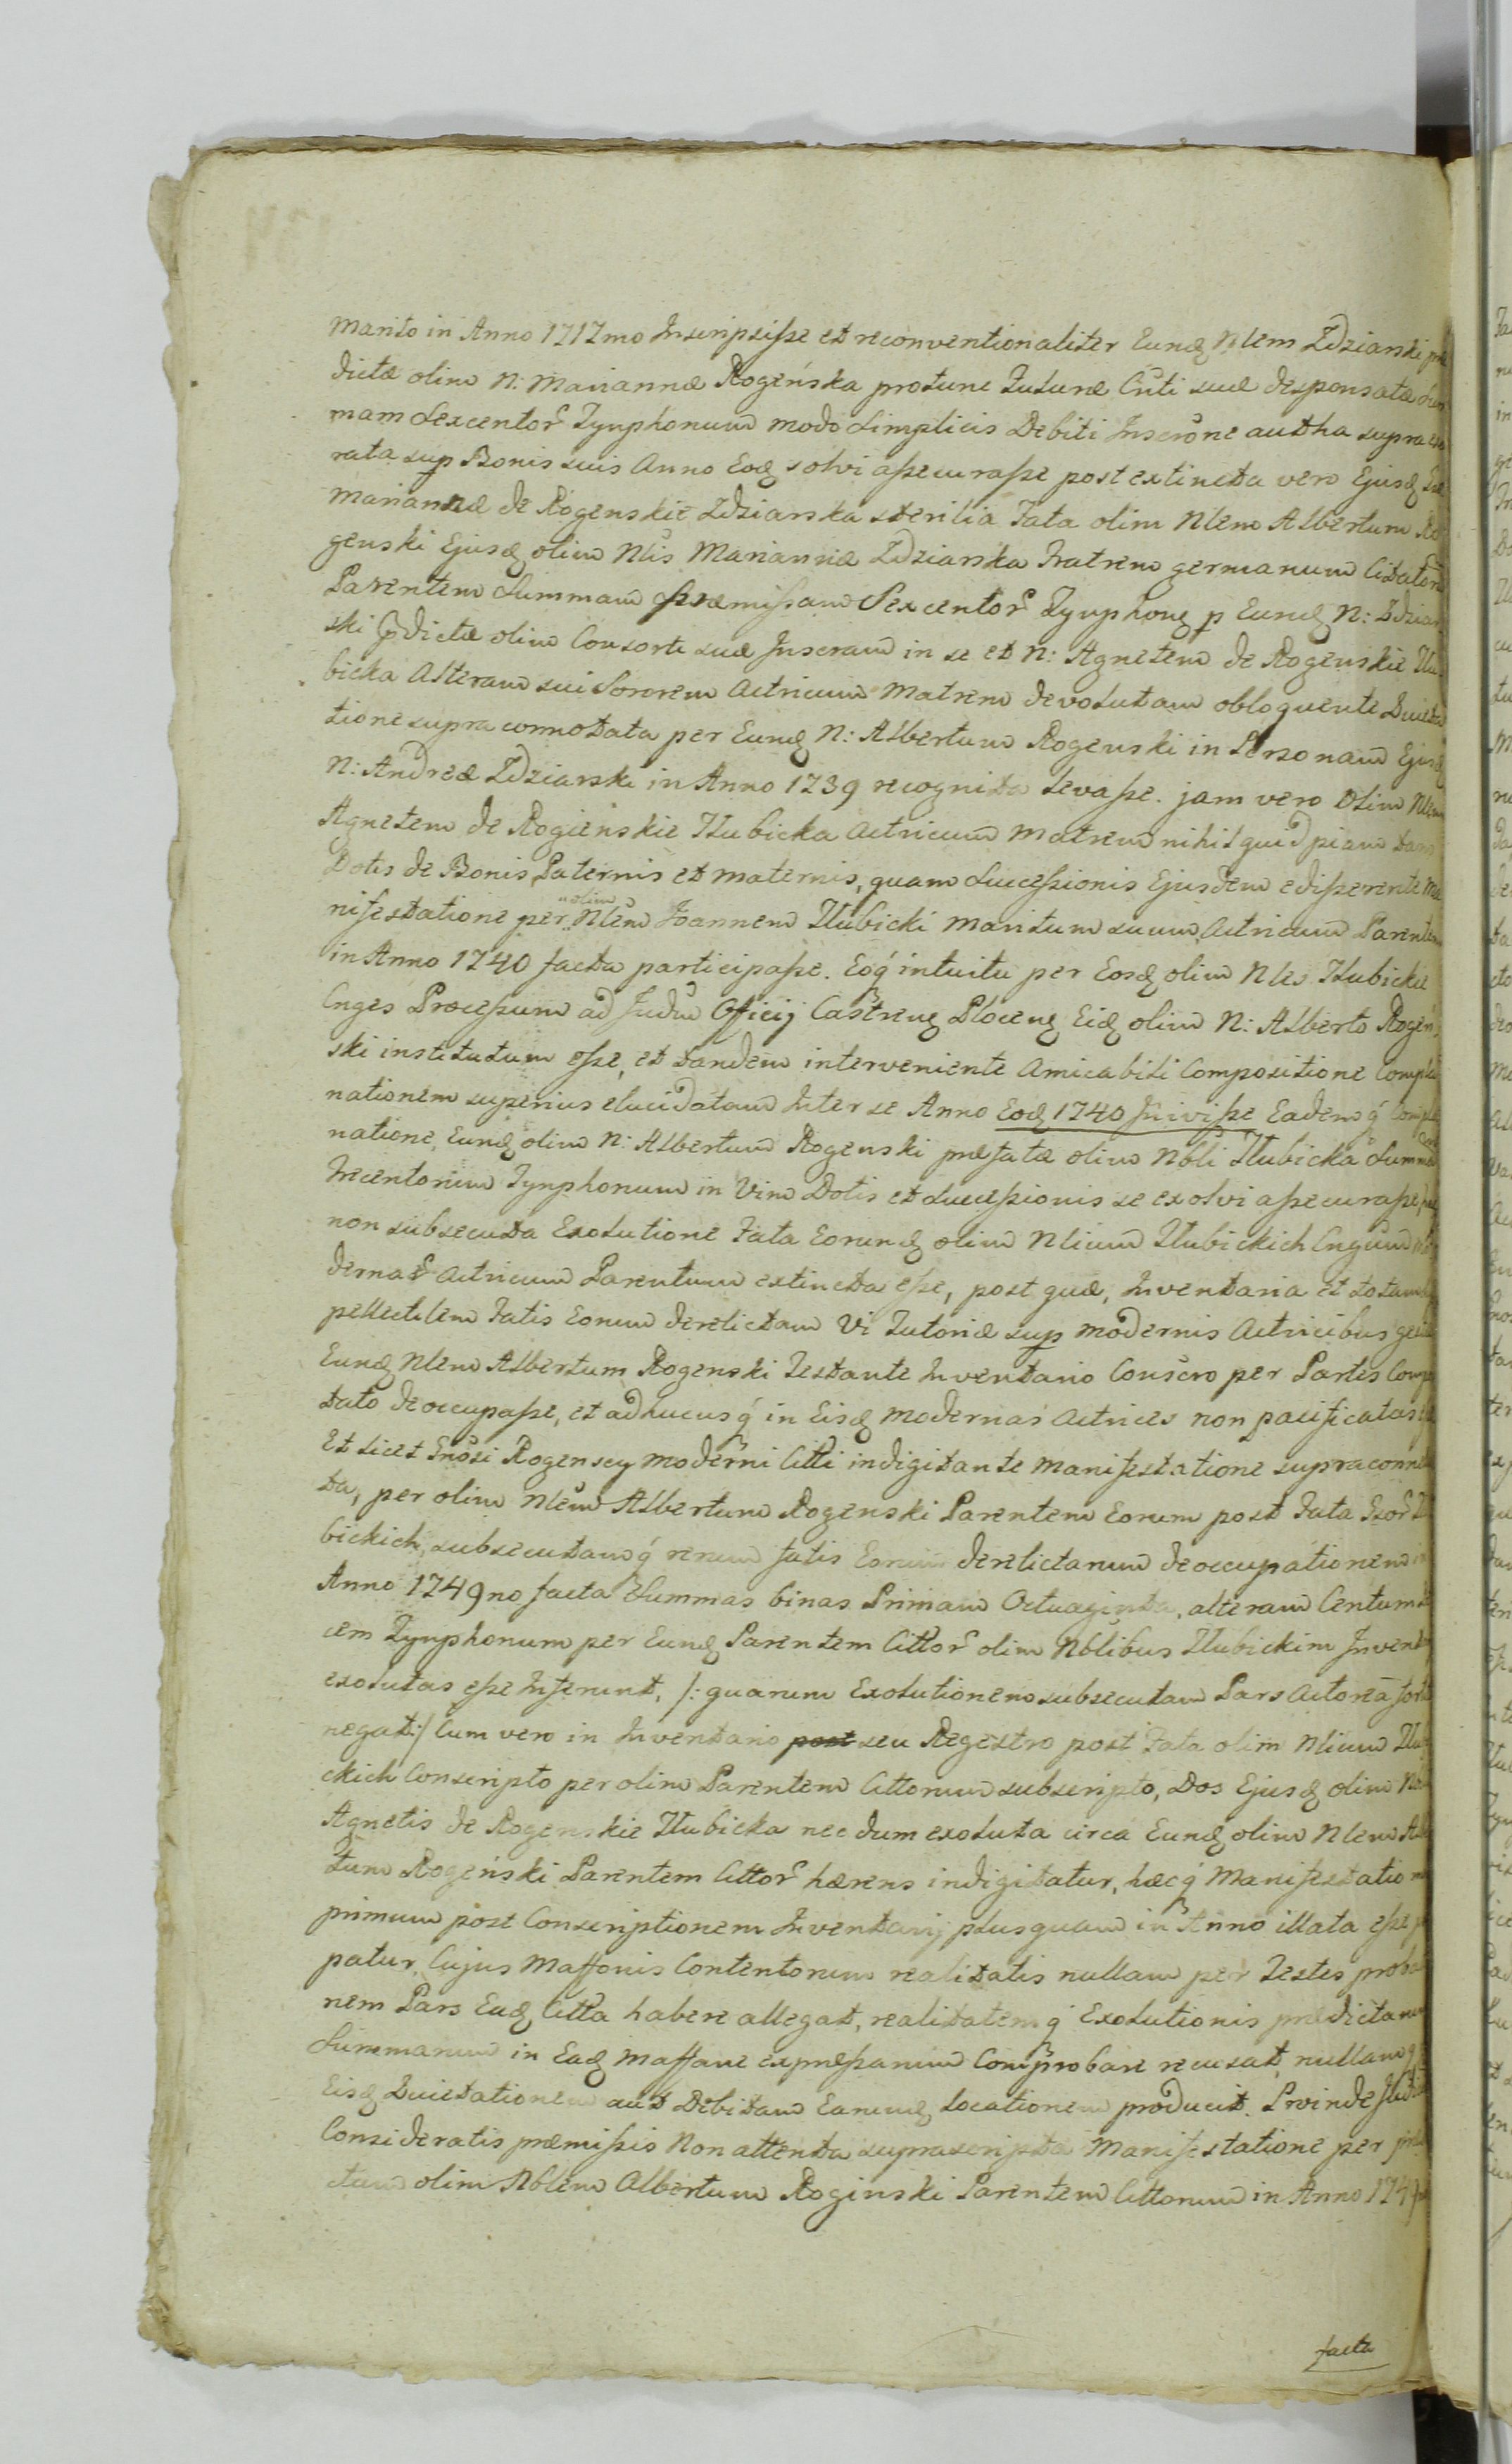 marito in Anno 1717mo Inscripsiße et reconventionaliter Eundq Nlem Zdziarski præ
dictæ olim N: Mariannæ Rogeńska protunc Futuræ Cnti suæ desponsatæ Sum
mam Sexcentor Tynphonum modo Simplicis Debiti Inscrone autha supra exa
rata sup Bonis suis Anno Eodq solvi aßecuraße post extincta vero Ejusdq
Mariannæ de Rogenskie Zdziarska sterilia Fata olim Nlem Albertum Ro
genski Ejusdq olim Nlis Mariannæ Zdziarska Fratrem germanum Citatorum
Parentem Summam præmißam Sexcentor Tynphonq p Eundq N: Zdziar
ski prædictæ olim Consorti suæ Inscram in se et N: Agnetem de Rogenskie Iłu
bicka Alteram sui Sororem Actricum Matrem devolutam obloquente Quieta
tione supra connotata per Eundq N: Albertum Rogenski in Personam Ejusdq
N: Andreæ Zdziarski in Anno 1739 recognita levaße. jam vero Olim Nlem
Agnetem de Rogieńskie Iłubicka Actricum Matrem nihil quidpiam tam
Dotis de Bonis Paternis et maternis, quam Succeßionis Ejusdem edißerente Ma
nifestatione per olim Nlem Joannem Iłubicki Maritum suum Actricum Parentem
in Anno 1740 facta participaße. Eoq intuitu per Eosdq olim Nles Iłubickie
Cnges Proceßum ad Judm Officij Castrenq Plocenq Eidq olim N: Alberto Rogeń
ski institutum eße, et tandem interveniente Amicabili Compositione Compla
nationem superius elucidatam Inter se Anno Eodq 1740 Iniviße Eademq Compla
natione, Eundq olim N: Albertum Rogenski præfatæ olim Nobli Iłubicka Summam
Trecentorum Tynphonum in Vim Dotis et Succeßionis se exolvi aßecuraße,
non subsecuta Exolutione Fata Eorundq olim Nlium Iłubickich Cngum mo
dernar Actricum Parentum extincta eße, post quæ, Inventaria et totam su
pellectilem Fatis Eorum derelictam Vi Tutoriæ sup modernis Actricibus
Eundq Nlem Albertum Rogenski Testante Inventario Conscro per Partes Compor
tato deoccupaße, et adhucusq in Eisdq modernas Actrices non pacificatas
Et licet Gnosi Rogenscy moderni Citti indigitante Manifestatione supra connota
ta, per olim Nlem Albertum Rogenski Parentem Eorum post Fata Gsor Iłu
bickich, subsecutamq rerum fatis Eorum derelictarum deoccupationem in
Anno 1749no facta Summas binas Primam Octuaginta, alteram Centum de
cem Tynphonum per Eundq Parentem Cittor olim Noblibus Iłubickim
exolutas eße Inferunt, /: quarum Exolutionem subsecutam Pars Actorea
negat :/ Cum vero in Inventario post seu Regestro post Fata olim Nlium Iłubi
ckich Conscripto per olim Parentem Cittorum subscripto, Dos Ejusdq olim
Agnetis de Rogenskie Iłubicka nec dum exoluta circa Eundq olim Nlem Alber
tum Rogeński Parentem Cittor hærens indigitatur, hæcq Manifestatio
primum post Conscriptionem Inventarij plusquam in Anno illata eße
patur, Cujus Maffonis Contentorum realitatis nullam per Testes probatio
nem Pars Eadq Citta habere allegat, realitatemq Exolutionis prædictarum
Summarum in Eadq Maffane expreßarum Comprobare recusat, nullamq
Eisdq Quietationem aut Debitam Earundq Locationem producit. Proinde Judm
Consideratis præmißis Non attenta suprascripta Manifestatione per præ
ctum olim Noblem Albertum Roginski Parentem Cittorum in Anno
facta